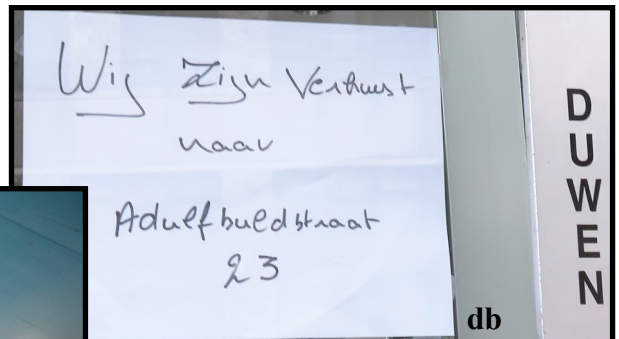 Wij Zijn Verhuist
naar
Adulfbuldstraat
23
DUWEN
db